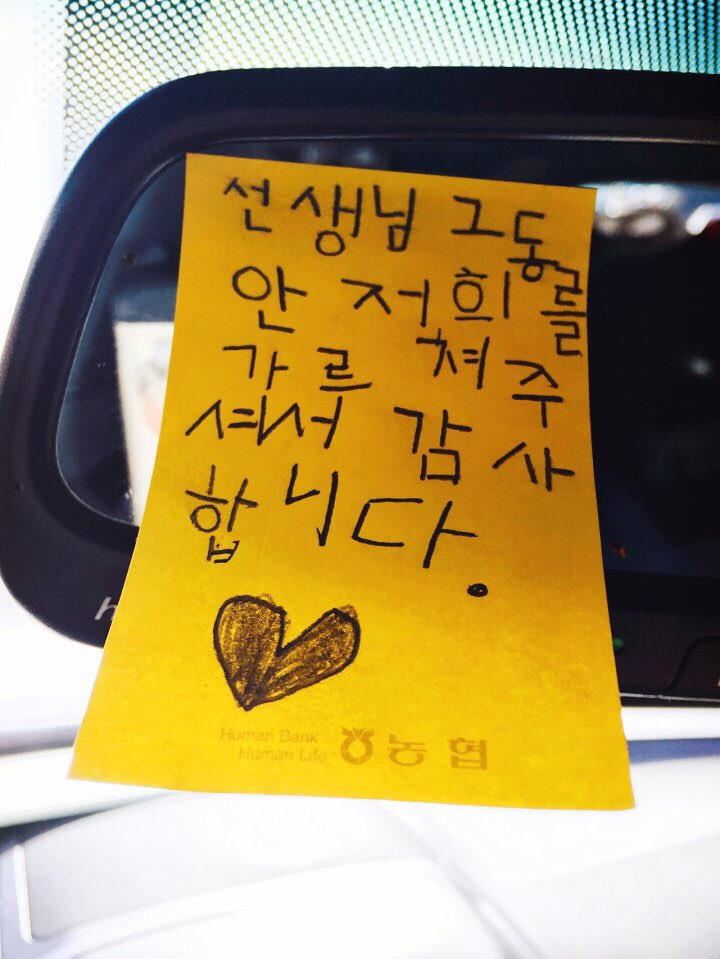 선생님 그동
안 저희를
가르쳐주
셔서 감사
합니다.
Human Bank
Human Life 농협